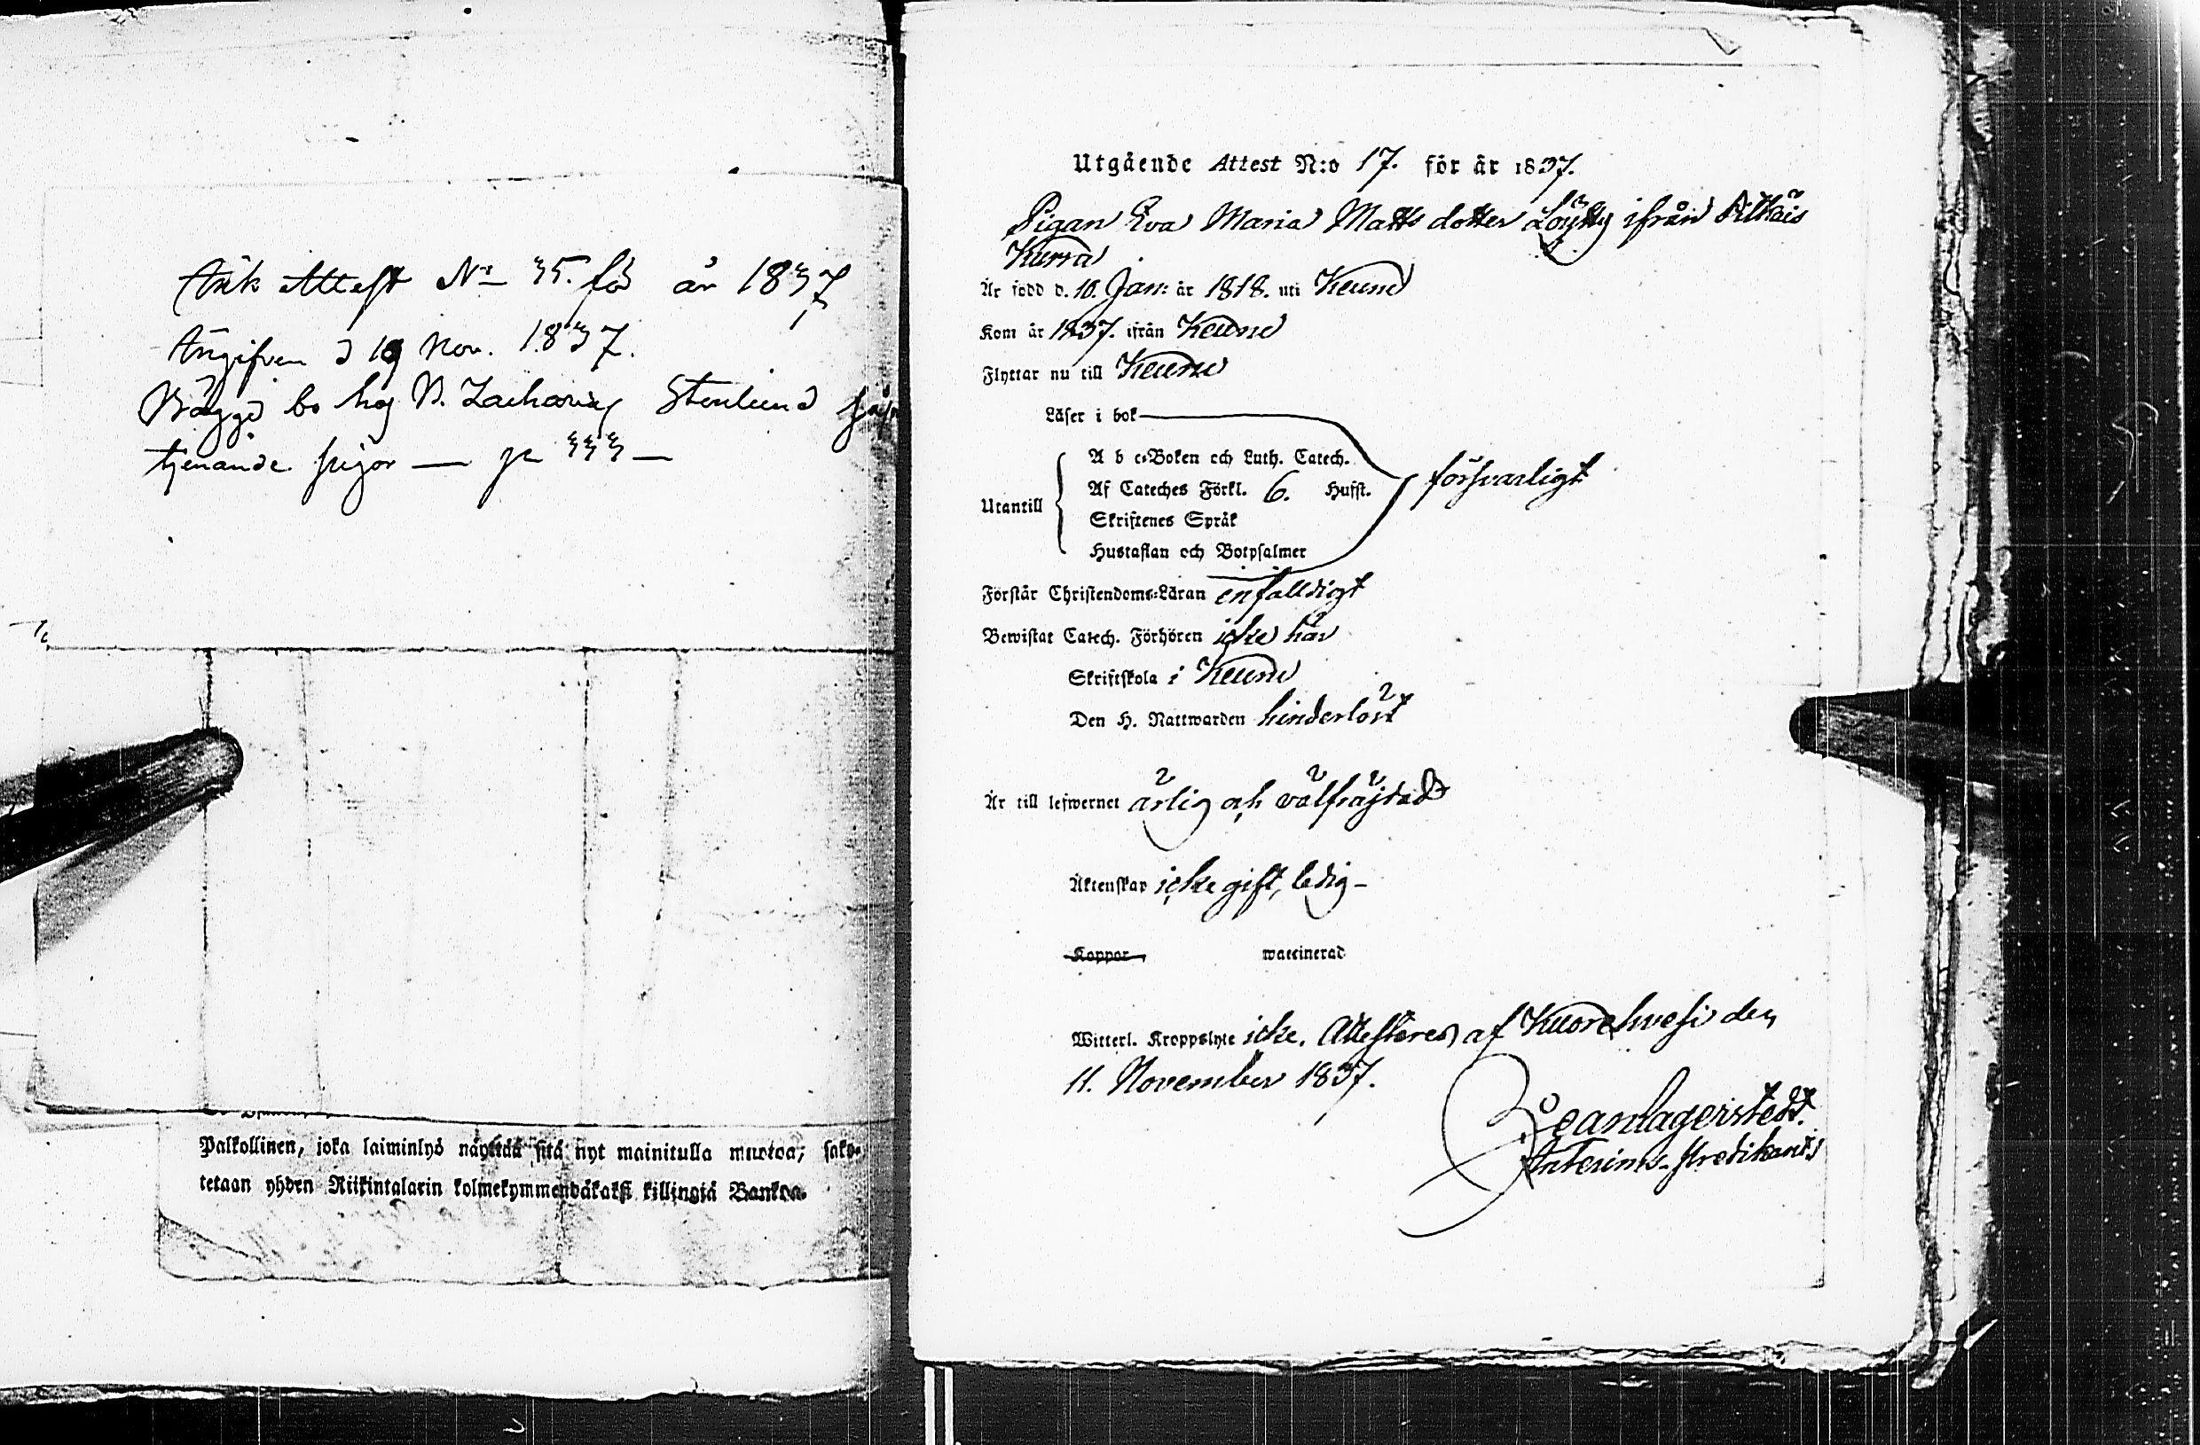 Ank Attest No 35. för år 1837
Angifven d 19 Nov. 1837.
Bägge bo hos B. Zacharias Stenlund
tjenande pigor — p 333 —
Palkollinen, joka laiminlyö näyttää sitä nyt mainitulla muotoa, sako-
tetaan yhden Riikintalarin kolmekymmendäkaksi killingiä Bankoa.
Utgående Attest N:o 17. för år 1837.
Pigan Eva Maria Matts dotter Löytty ifrån Pitkäis
Kurra
Är född d. 10. Jan: år 1818. uti Keuru
Kom år 1837. ifrån Keuru
Flyttar nu till Keuru
Läser i bok
A b c-Boken och Luth. Catech.
Af Cateches Förkl. 6. Hufst. försvarligt
Utantill
Skriftenes Språk
Hustaflan och Botpsalmer
Förstår Christendoms-Läran enfalldigt
Bewistat Catech. Förhören icke här
Skriftskola i Keuru
Den H. Nattwarden hinderlöst
Är till lefwernet ärlig och välfräjdad
Äktenskap icke gift, ledig –
Koppor waccinerad
Witterl. Kroppslyte icke. Attesteras af Kuorehvesi den
11. November 1837.
Interims-Predikant